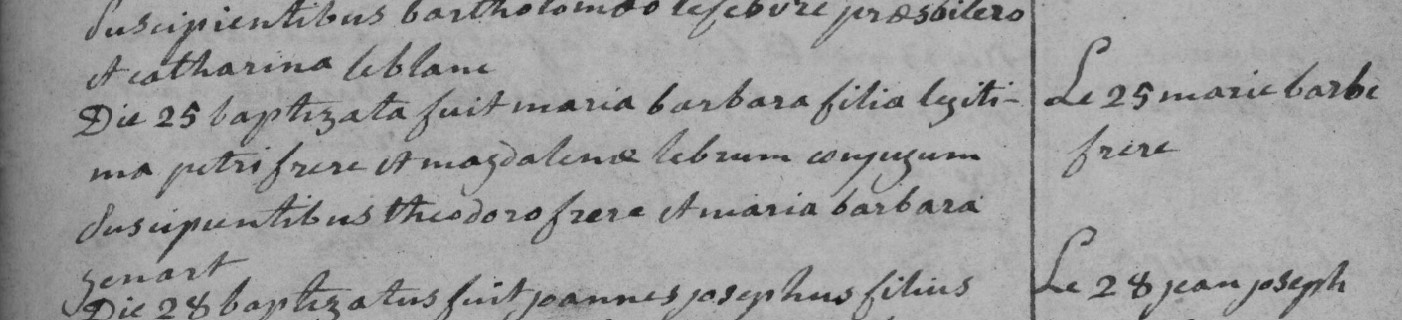 suscipientibus bartholomæo lefebvre præsbitero
et catharina leblanc
Die 25 baptizata fuit maria barbara filia legiti-
ma petri frere et magdalenæ lebrum conjugum
suscipientibus theodoro frere et maria barbara
genart
Die 28 baptizatus fuit joannes josephus filius
Le 25 marie barbe
frere
Le 28 jean joseph